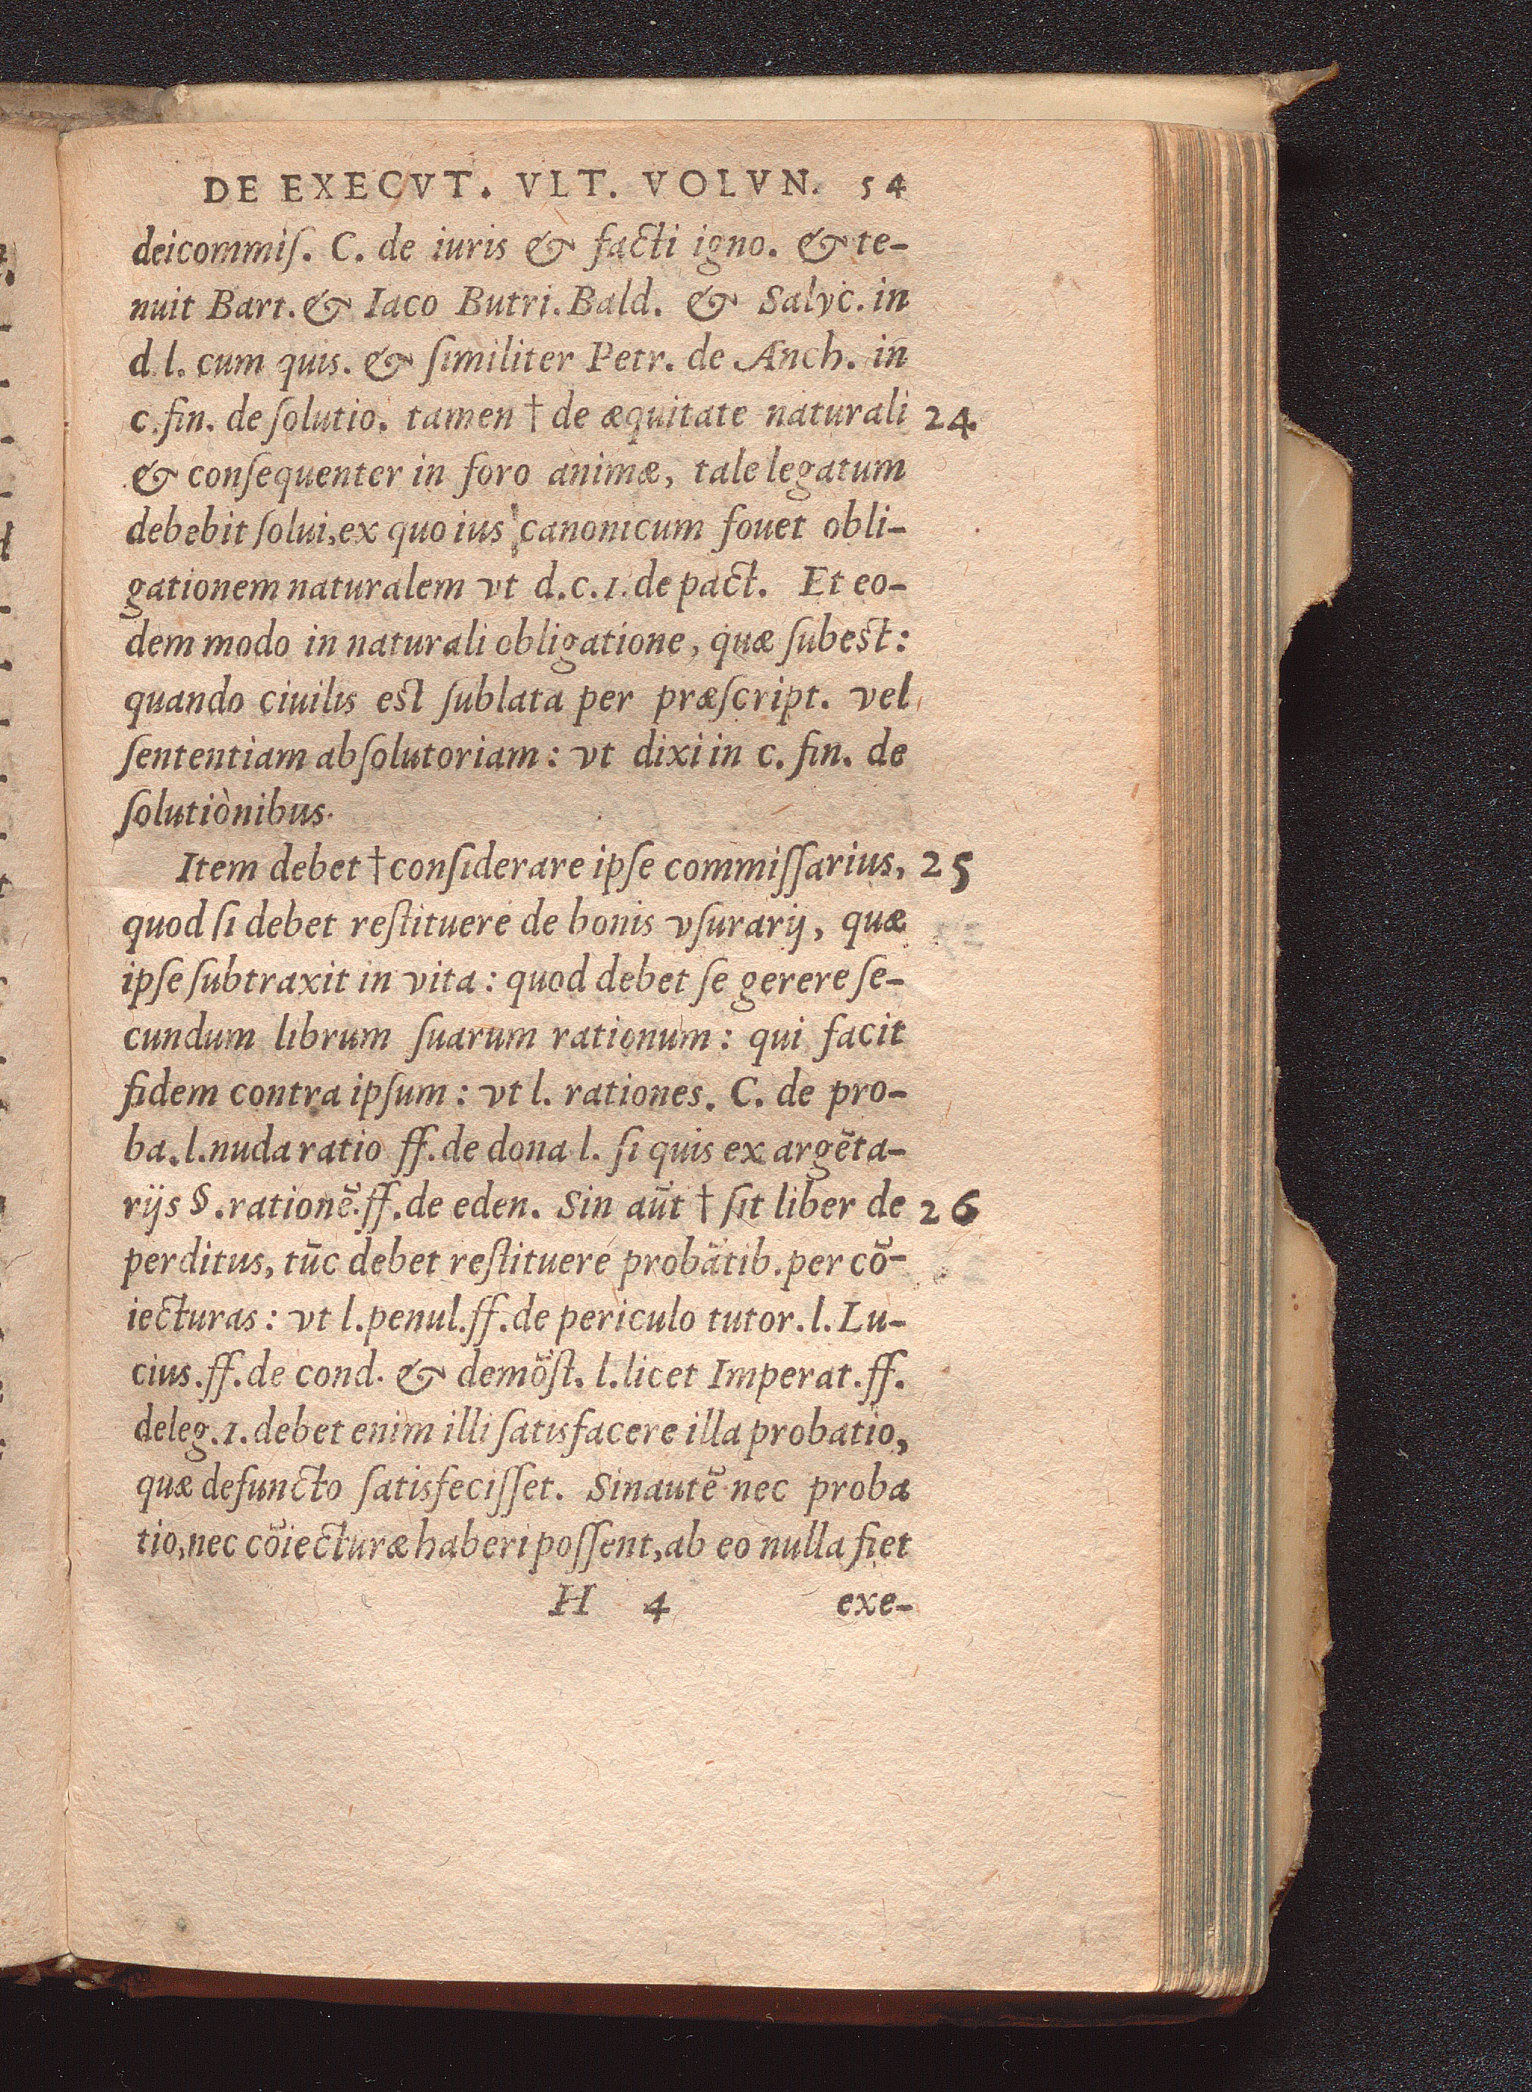 DE EXECVT. VLT. VOLVN. 54
deicommiſ. C. de iuris & facti igno. & te-
nuit Bart. & Iaco Butri. Bald. & Salyc. in
d. l. cum quis. & ſimiliter Petr. de Anch. in
c. fin. de ſolutio. tamen † de æquitate naturali 24.
& conſequenter in foro animæ, tale legatum
debebit ſolui, ex quo ius canonicum fouet obli-
gationem naturalem vt d. c. 1. de pact. Et eo-
dem modo in naturali obligatione, quæ ſubest:
quando ciuilis est ſublata per præſcript. vel
ſententiam abſolutoriam: vt dixi in c. fin. de
ſolutionibus.
Item debet † conſiderare ipſe commiſſarius, 25
quod ſi debet reſtituere de bonis vſurarij, quæ
ipſe ſubtraxit in vita: quod debet ſe gerere ſe-
cundum librum ſuarum rationum: qui facit
fidem contra ipſum: vt l. rationes. C. de pro-
ba. l. nuda ratio ff. de dona l. ſi quis ex argẽta-
rijs §. rationẽ. ff. de eden. Sin aũt † ſit liber de 26
perditus, tũc debet reſtituere probãtib. per cõ-
iecturas: vt l. penul. ff. de periculo tutor. l. Lu-
cius. ff. de cond. & demõſt. l. licet Imperat. ff.
de leg. 1. debet enim illi ſatisfacere illa probatio,
quæ defuncto ſatisfeciſſet. Sin autẽ nec proba
tio, nec cõiecturæ haberi poſſent, ab eo nulla fiet
H 4 exe-